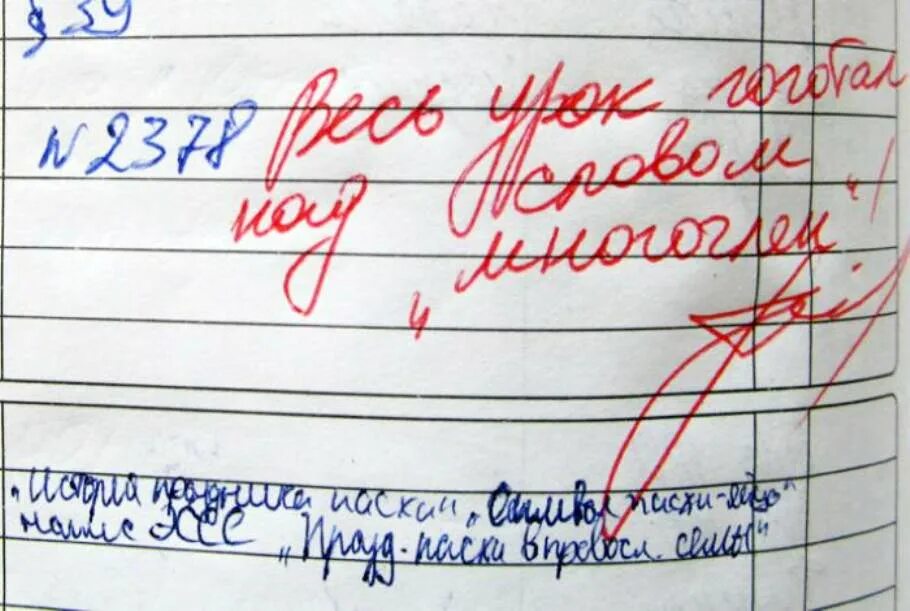 § 39
N 2378
Весь урок гоготал
над словом
„многочлен"!
„История праздника пасхи „Символ пасхи-яйцо"
напис ЭССЕ „Празд. пасхи в правосл. семье"